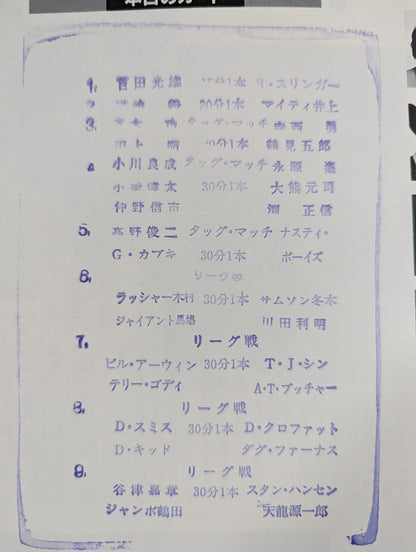 本日のカード
1. 冨田光雄 15分1本 R・スリンガー
2. 20分1本 マイティ井上
3. タッグ・マッチ
20分1本 鶴見五郎
4 小川良成 タッグ・マッチ 永源遙
30分1本 大熊元司
仲野信市 渕正信
5. 高野俊二 タッグ・マッチ ナスティ・
G・カブキ 30分1本 ボーイズ
6. リーグ戦
ラッシャー木村 30分1本 サムソン冬木
ジャイアント馬場 川田利明
7. リーグ戦
ビル・アーウィン 30分1本 T・J・シン
テリー・ゴディ A・T・ブッチャー
8. リーグ戦
D・スミス 30分1本 D・クロファット
D・キッド ダグ・ファーナス
9. リーグ戦
谷津嘉章 30分1本 スタン・ハンセン
ジャンボ鶴田 天龍源一郎